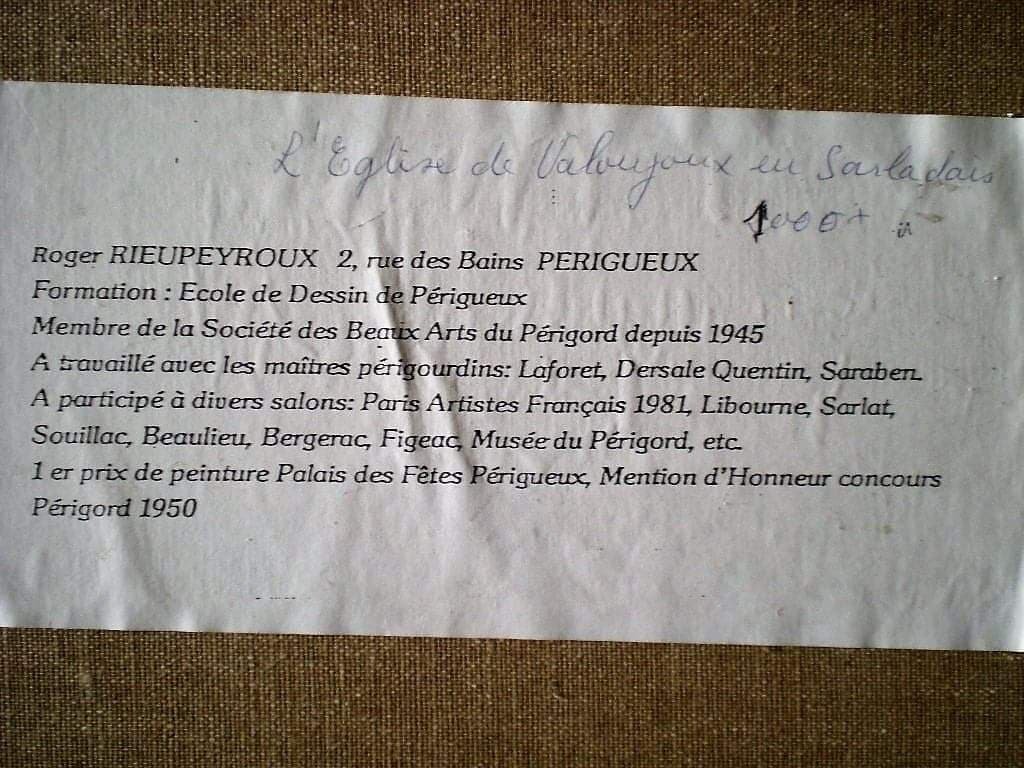 L'Eglise de Valoujoux en Sarladais
1000+
Roger RIEUPEYROUX 2, rue des Bains PERIGUEUX
Formation : Ecole de Dessin de Périgueux
Membre de la Société des Beaux Arts du Périgord depuis 1945
A travaillé avec les maîtres périgourdins: Laforet, Dersale Quentin, Saraben.
A participé à divers salons: Paris Artistes Français 1981, Libourne, Sarlat,
Souillac, Beaulieu, Bergerac, Figeac, Musée du Périgord, etc.
1 er prix de peinture Palais des Fêtes Périgueux, Mention d'Honneur concours
Périgord 1950